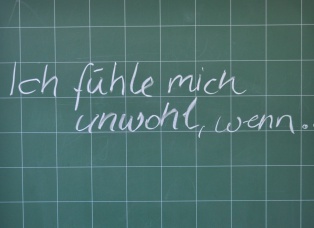 Ich fühle mich
unwohl, wenn..